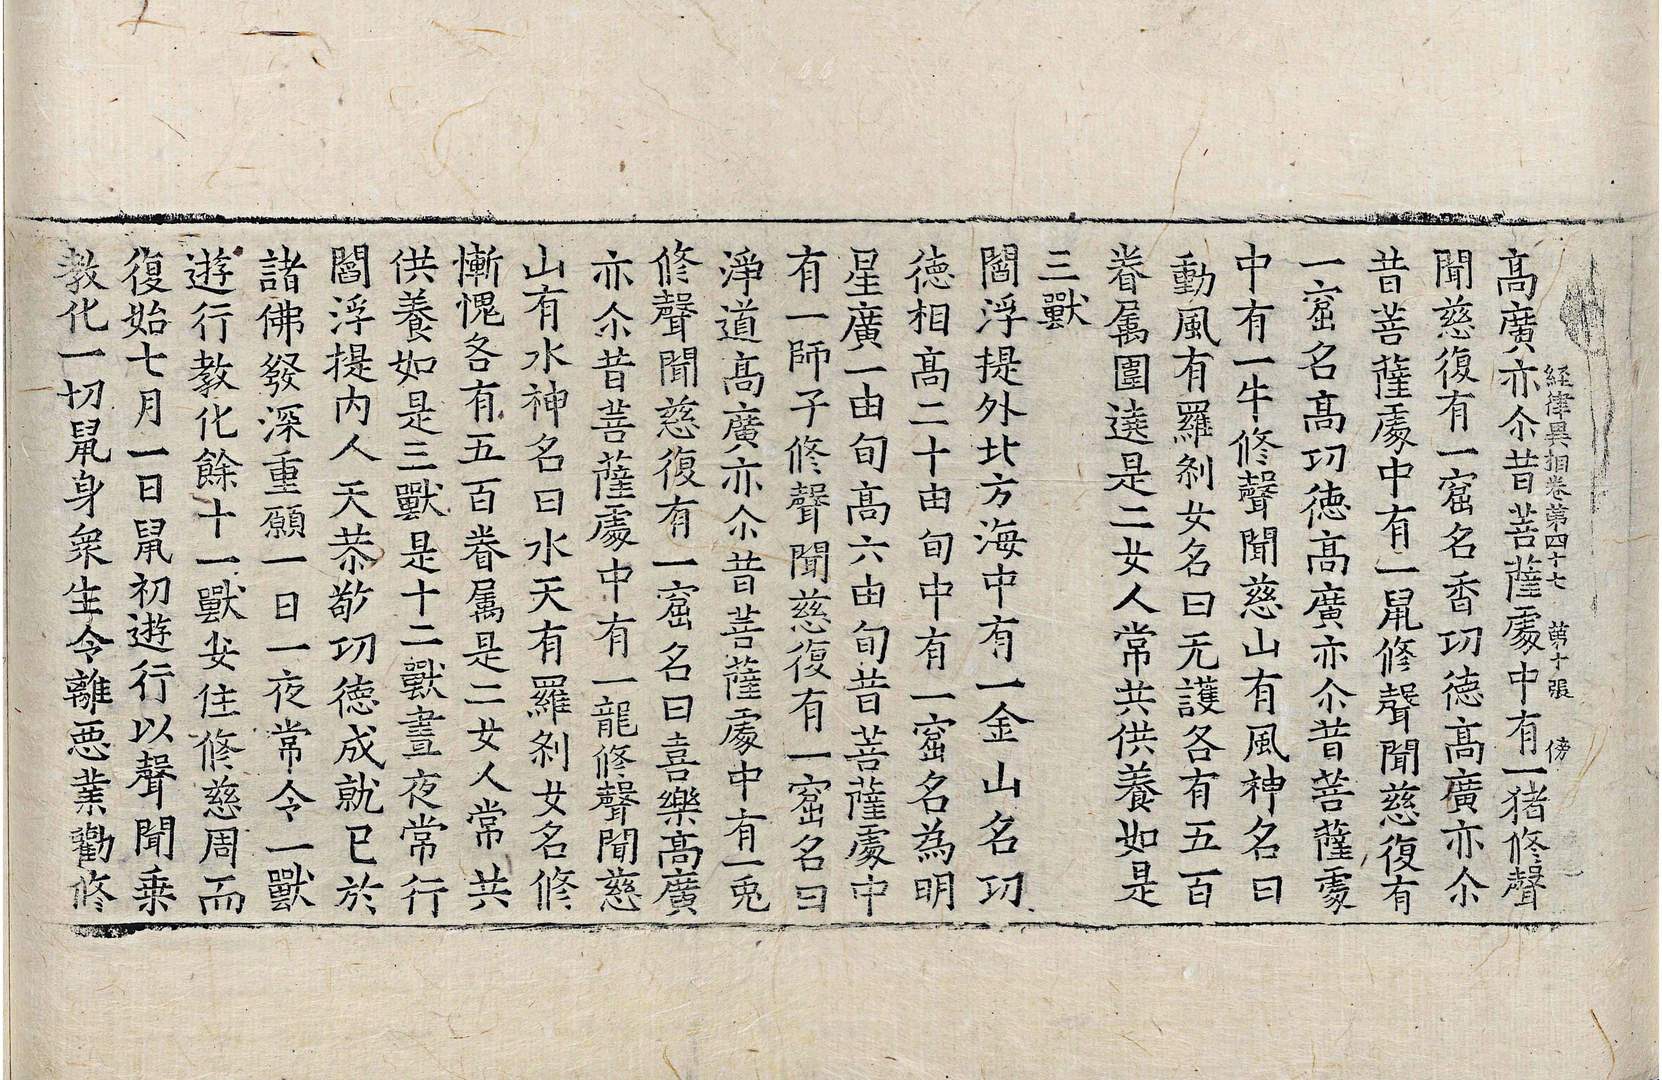 経律異相卷第四十七 第十張 傍
髙廣亦尒昔菩薩處中有一猪修聲
聞慈復有一窟名香㓛徳髙廣亦尒
昔菩薩處中有一鼠修聲聞慈復有
一窟名髙㓛徳髙廣亦尒昔菩薩處
中有一牛修聲聞慈山有風神名曰
動風有羅剎女名曰无護各有五百
眷属圍遶是二女人常共供養如是
三獸
閻浮提外北方海中有一金山名㓛
徳相髙二十由旬中有一窟名為明
星廣一由旬髙六由旬昔菩薩處中
有一師子修聲聞慈復有一窟名曰
淨道髙廣亦尒昔菩薩處中有一兎
修聲聞慈復有一窟名曰喜樂髙廣
亦尒昔菩薩處中有一龍修聲聞慈
山有水神名曰水天有羅剎女名修
慚愧各有五百眷属是二女人常共
供養如是三獸是十二獸晝夜常行
閻浮提内人天恭敬㓛徳成就已於
諸佛發深重願一日一夜常令一獸
遊行教化餘十一獸安住修慈周而
復始七月一日鼠初遊行以聲聞乗
教化一切鼠身衆生令離惡業勸修